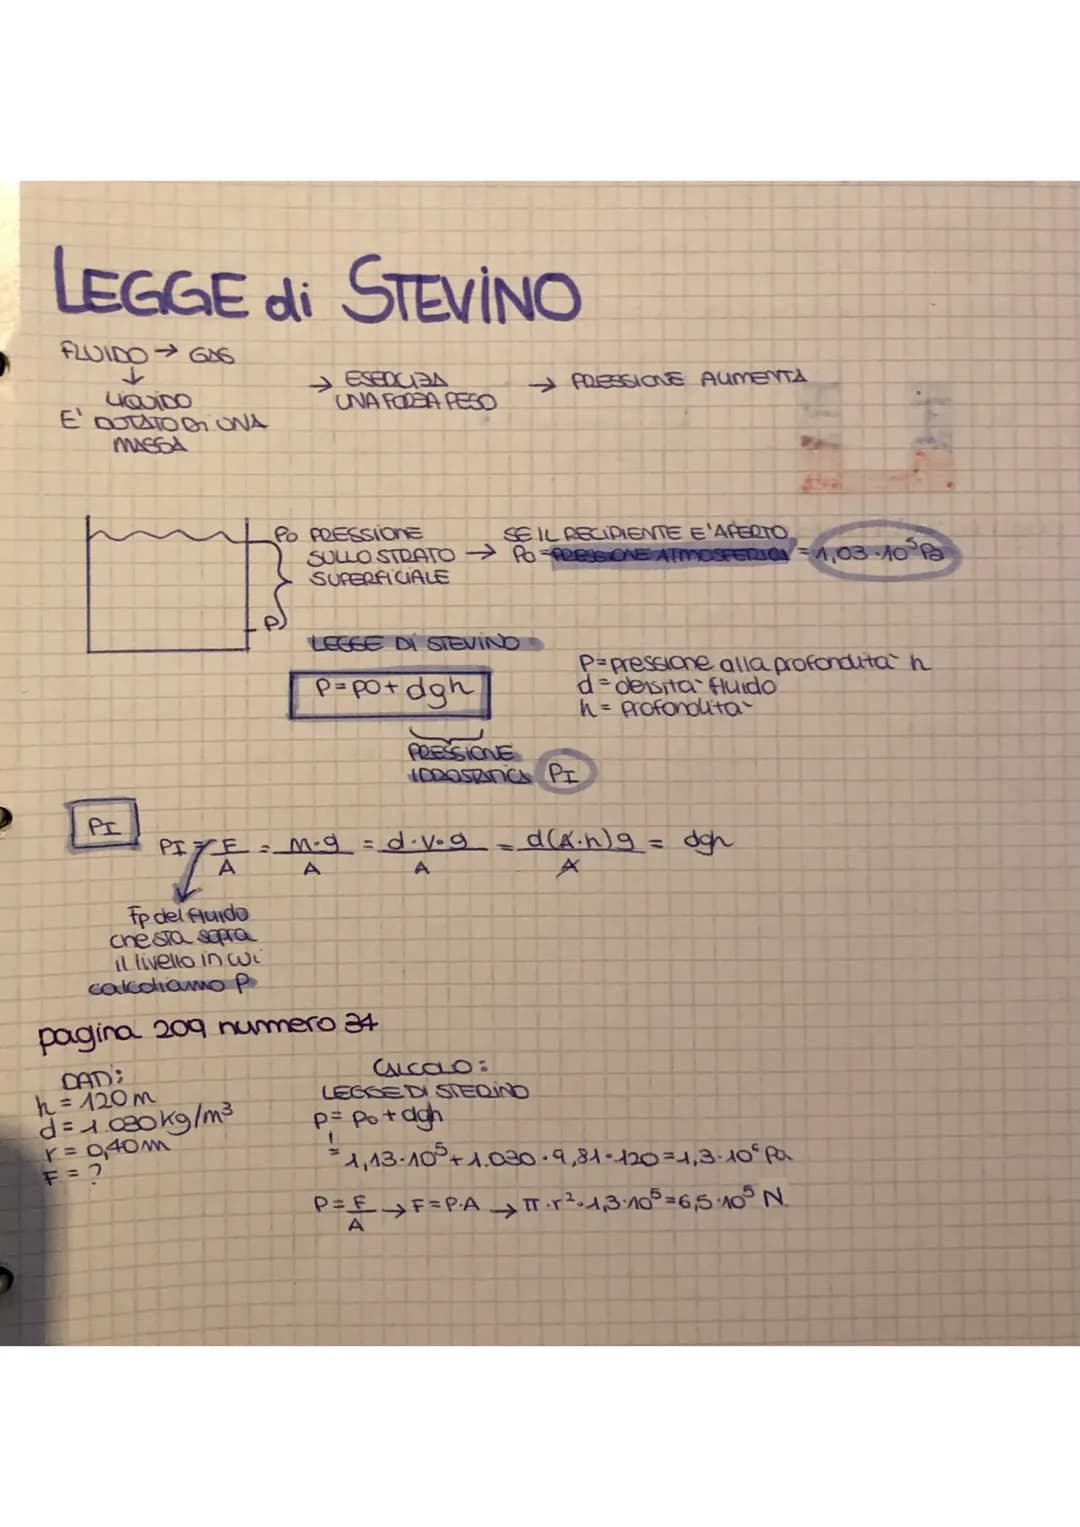 LEGGE di STEVINO
FLUIDO → GAS
↓
LIQUIDO
E' DOTATO DI UNA
MASSA
→ ESERCIZA
UNA FORZA PESO
→ PRESSIONE AUMENTA
P0 PRESSIONE
SULLO STRATO →
SUPERFICIALE
SE IL RECIPIENTE E' APERTO
P0 = PRESSIONE ATMOSFERICA = 1,03·10⁵ Pa
P
LEGGE DI STEVINO
P=P0+dgh
P=pressione alla profondita` h
d = densita` fluido
h = profondita`
PRESSIONE
IDROSTATICA PI
PI
PI = F/A = m·g/A = d·V·g/A = d(A·h)g/A = dgh
Fp del fluido
che sta sopra
il livello in cui
calcoliamo P
pagina 209 numero 34
DATI:
h = 120 m
d = 1.030 kg/m³
r = 0,40 m
F = ?
CALCOLO:
LEGGE DI STEVINO
p = p0 + dgh
= 1,13·10⁵ + 1.030·9,81·120 = 1,3·10⁶ Pa
P = F/A → F = P·A → π·r²·1,3·10⁵ = 6,5·10⁵ N